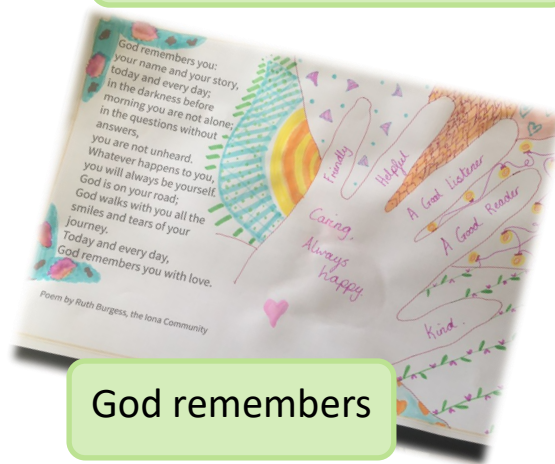 God remembers you:
your name and your story,
today and every day;
in the darkness before
morning you are not alone;
in the questions without
answers,
you are not unheard.
Whatever happens to you,
you will always be yourself.
God is on your road;
God walks with you all the
smiles and tears of your
journey.
Today and every day,
God remembers you with love.
Poem by Ruth Burgess, the Iona Community
Friendly
Helpful
A Good Listener
A Good Reader
Kind.
Caring.
Always
happy
God remembers